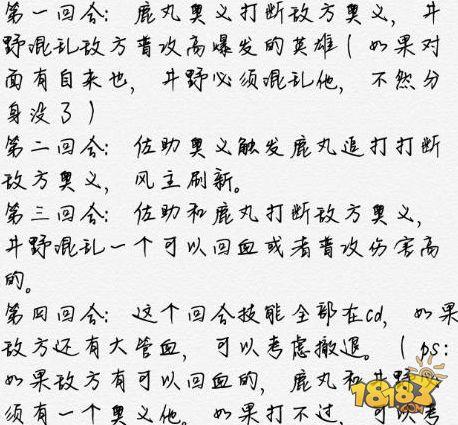 第一回合：鹿丸奥义打断敌方奥义，井
野混乱敌方普攻高爆发的英雄（如果对
面有自来也，井野必须混乱他，不然分
身没了）
第二回合：佐助奥义触发鹿丸追打打断
敌方奥义，风主刷新。
第三回合：佐助和鹿丸打断敌方奥义，
井野混乱一个可以回血或者普攻伤害高
的。
第四回合：这个回合技能全部在cd，如果
敌方还有大管血，可以考虑撤退。（ps：
如果敌方有可以回血的，鹿丸和井野
须有一个奥义他。如果打不过，可以考
18183